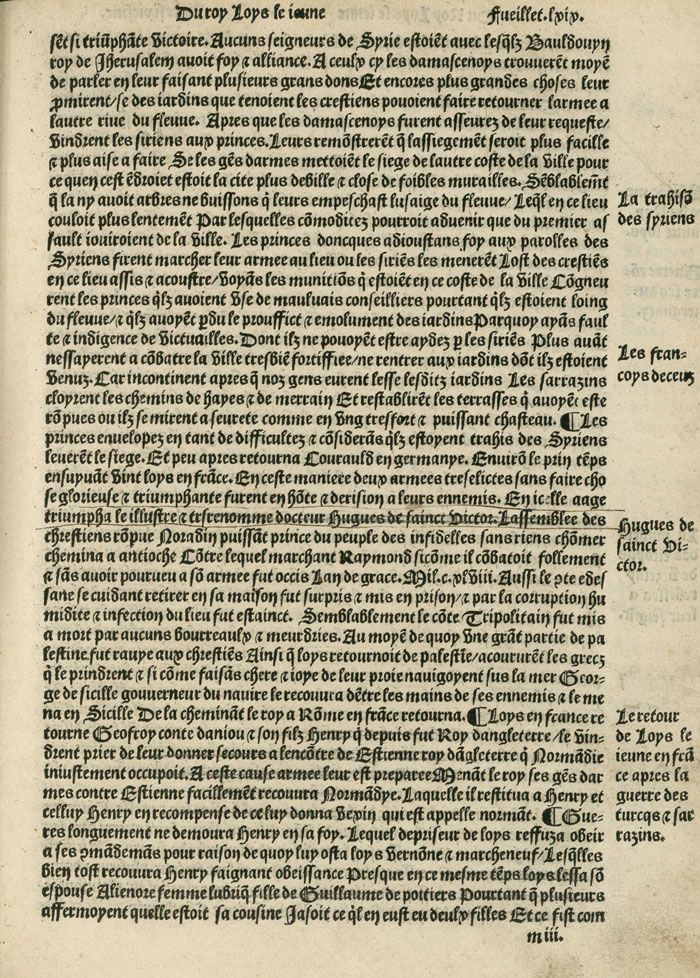 Du roy Loys le ieune
Fueillet.lxix.
sēt si triūphāte victoire. Aucuns seigneurs de Syrie estoiēt avec lesq̄lz Bauldouyn
roy de Jherusalem avoit foy ⁊ alliance. A ceulx cy les damascenoys trouverēt moyē
de parler en leur faisant plusieurs grans dons Et encores plus grandes choses leur
ꝓmirent/se des iardins que tenoient les crestiens pouoient faire retourner larmee a
lautre rive du fleuve. Apres que les damascenoys furent asseurez de leur requeste/
vindrent les siriens aux princes. Leurs remōstrerēt q̄ lassiegemēt seroit plus facille
⁊ plus aise a faire Se les gēs darmes mettoiēt le siege de lautre coste de la ville pour
ce quen cest ēdroiet estoit la cite plus debille ⁊ close de foibles murailles. Sēblablemēt
q̄ la ny avoit arbres ne buissons q̄ leurs empeschast lusaige du fleuve/ Leq̄l en ce lieu
couloit plus lentemēt Par lesquelles cōmoditez pourroit advenir que du premier as
sault iouiroient de la ville. Les princes doncques adioustans foy aux parolles des
Syriens firent marcher leur armee au lieu ou les siriēs les menerēt Lost des crestiēs
en ce lieu assis ⁊ acoustre/voyās les munitiōs q̄ estoiēt en ce coste de la ville Cōgneu
rent les princes q̄lz avoient vse de maulvais conseilliers pourtant q̄lz estoient loing
du fleuve/⁊ q̄lz avoyēt ꝑdu le prouffict ⁊ emolument des iardins Parquoy ayās faul
te ⁊ indigence de victuailles. Dont ilz ne pouoyēt estre aydez ꝑ les siriēs Plus avāt
nessayerent a cōbatre la ville tresbiē fortiffiee/ne rentrer aux iardins dōt ilz estoient
venuz. Car incontinent apres q̄ noz gens eurent lesse lesditz iardins Les sarrazins
cloyrent les chemins de hayes ⁊ de merrain Et restablirēt les terrasses q̄ avoyēt este
rōpues ou ilz se mirent a seurete comme en vng tresfort ⁊ puissant chasteau. ¶ Les
princes envelopez en tant de difficultez ⁊ cōsiderās q̄lz estoyent trahis des Syriens
leverēt le siege. Et peu apres retourna Courauld en germanye. Environ le prin tēps
ensuyvāt vint loys en frāce. En ceste maniere deux armees treselictes sans faire cho
se glorieuse ⁊ triumphante furent en hōte ⁊ derision a leurs ennemis. En icelle aage
triumpha le illustre ⁊ tresrenomme docteur Hugues de sainct Victor. Lassemblee des
chrestiens rōpue Noradin puissāt prince du peuple des infidelles sans riens chōmer
chemina a antioche Cōtre lequel marchant Raymond sicōme il cōbatoit follement
⁊ sās avoir pourveu a sō armee fut occis Lan de grace. Mil.c.xlviii. Aussi le ꝯte edes
sane se cuidant retirer en sa maison fut surpris ⁊ mis en prison/⁊ par la corruption hu
midite ⁊ infection du lieu fut estainct. Semblablement le cōte Tripolitain fut mis
a mort par aucuns bourreaulx ⁊ meurdries. Au moyē de quoy vne grāt partie de pa
lestine fut ravye aux chrestiēs Ainsi q̄ loys retournoit de palestīe/acoururēt les grecz
q̄ le prindrent ⁊ si cōme faisās chere ⁊ ioye de leur proie navigoyent sus la mer Geor-
ge de sicille gouverneur du navire le recouvra dētre les mains de ses ennemis ⁊ le me
na en Sicille De la chemināt le roy a Rōme en frāce retourna. ¶ Loys en france re
tourne Geofroy conte daniou ⁊ son filz Henry q̄ depuis fut Roy dangleterre/le vin-
drent prier de leur donner secours a lencōtre de Estienne roy dāgleterre q̄ Normādie
iniustement occupoit. A ceste cause armee leur est preparee Menāt le roy ses gēs dar
mes contre Estienne facillemēt recouvra Normādye. Laquelle il restitua a Henry et
celluy Henry en recompense de ce luy donna vexin qui est appelle normāt. ¶ Gue-
res longuement ne demoura Henry en sa foy. Lequel depriseur de loys reffuza obeir
a ses ꝯmādemās pour raison de quoy luy osta loys vernōne ⁊ marcheneuf/Lesq̄lles
bien tost recouvra Henry faignant obeissance Presque en ce mesme tēps loys lessa sō
espouse Alienore femme lubriq̄ fille de Guillaume de poitiers Pourtant q̄ plusieurs
affermoyent quelle estoit sa cousine Jasoit ce q̄l en eust eu deulx filles Et ce fist com
m iii.
La trahisō
des syriens
Les fran-
coys deceuz
Hugues de
sainct Vi-
ctor.
Le retour
de Loys le
ieune en frā
ce apres la
guerre des
turcqs ⁊ sar
razins.